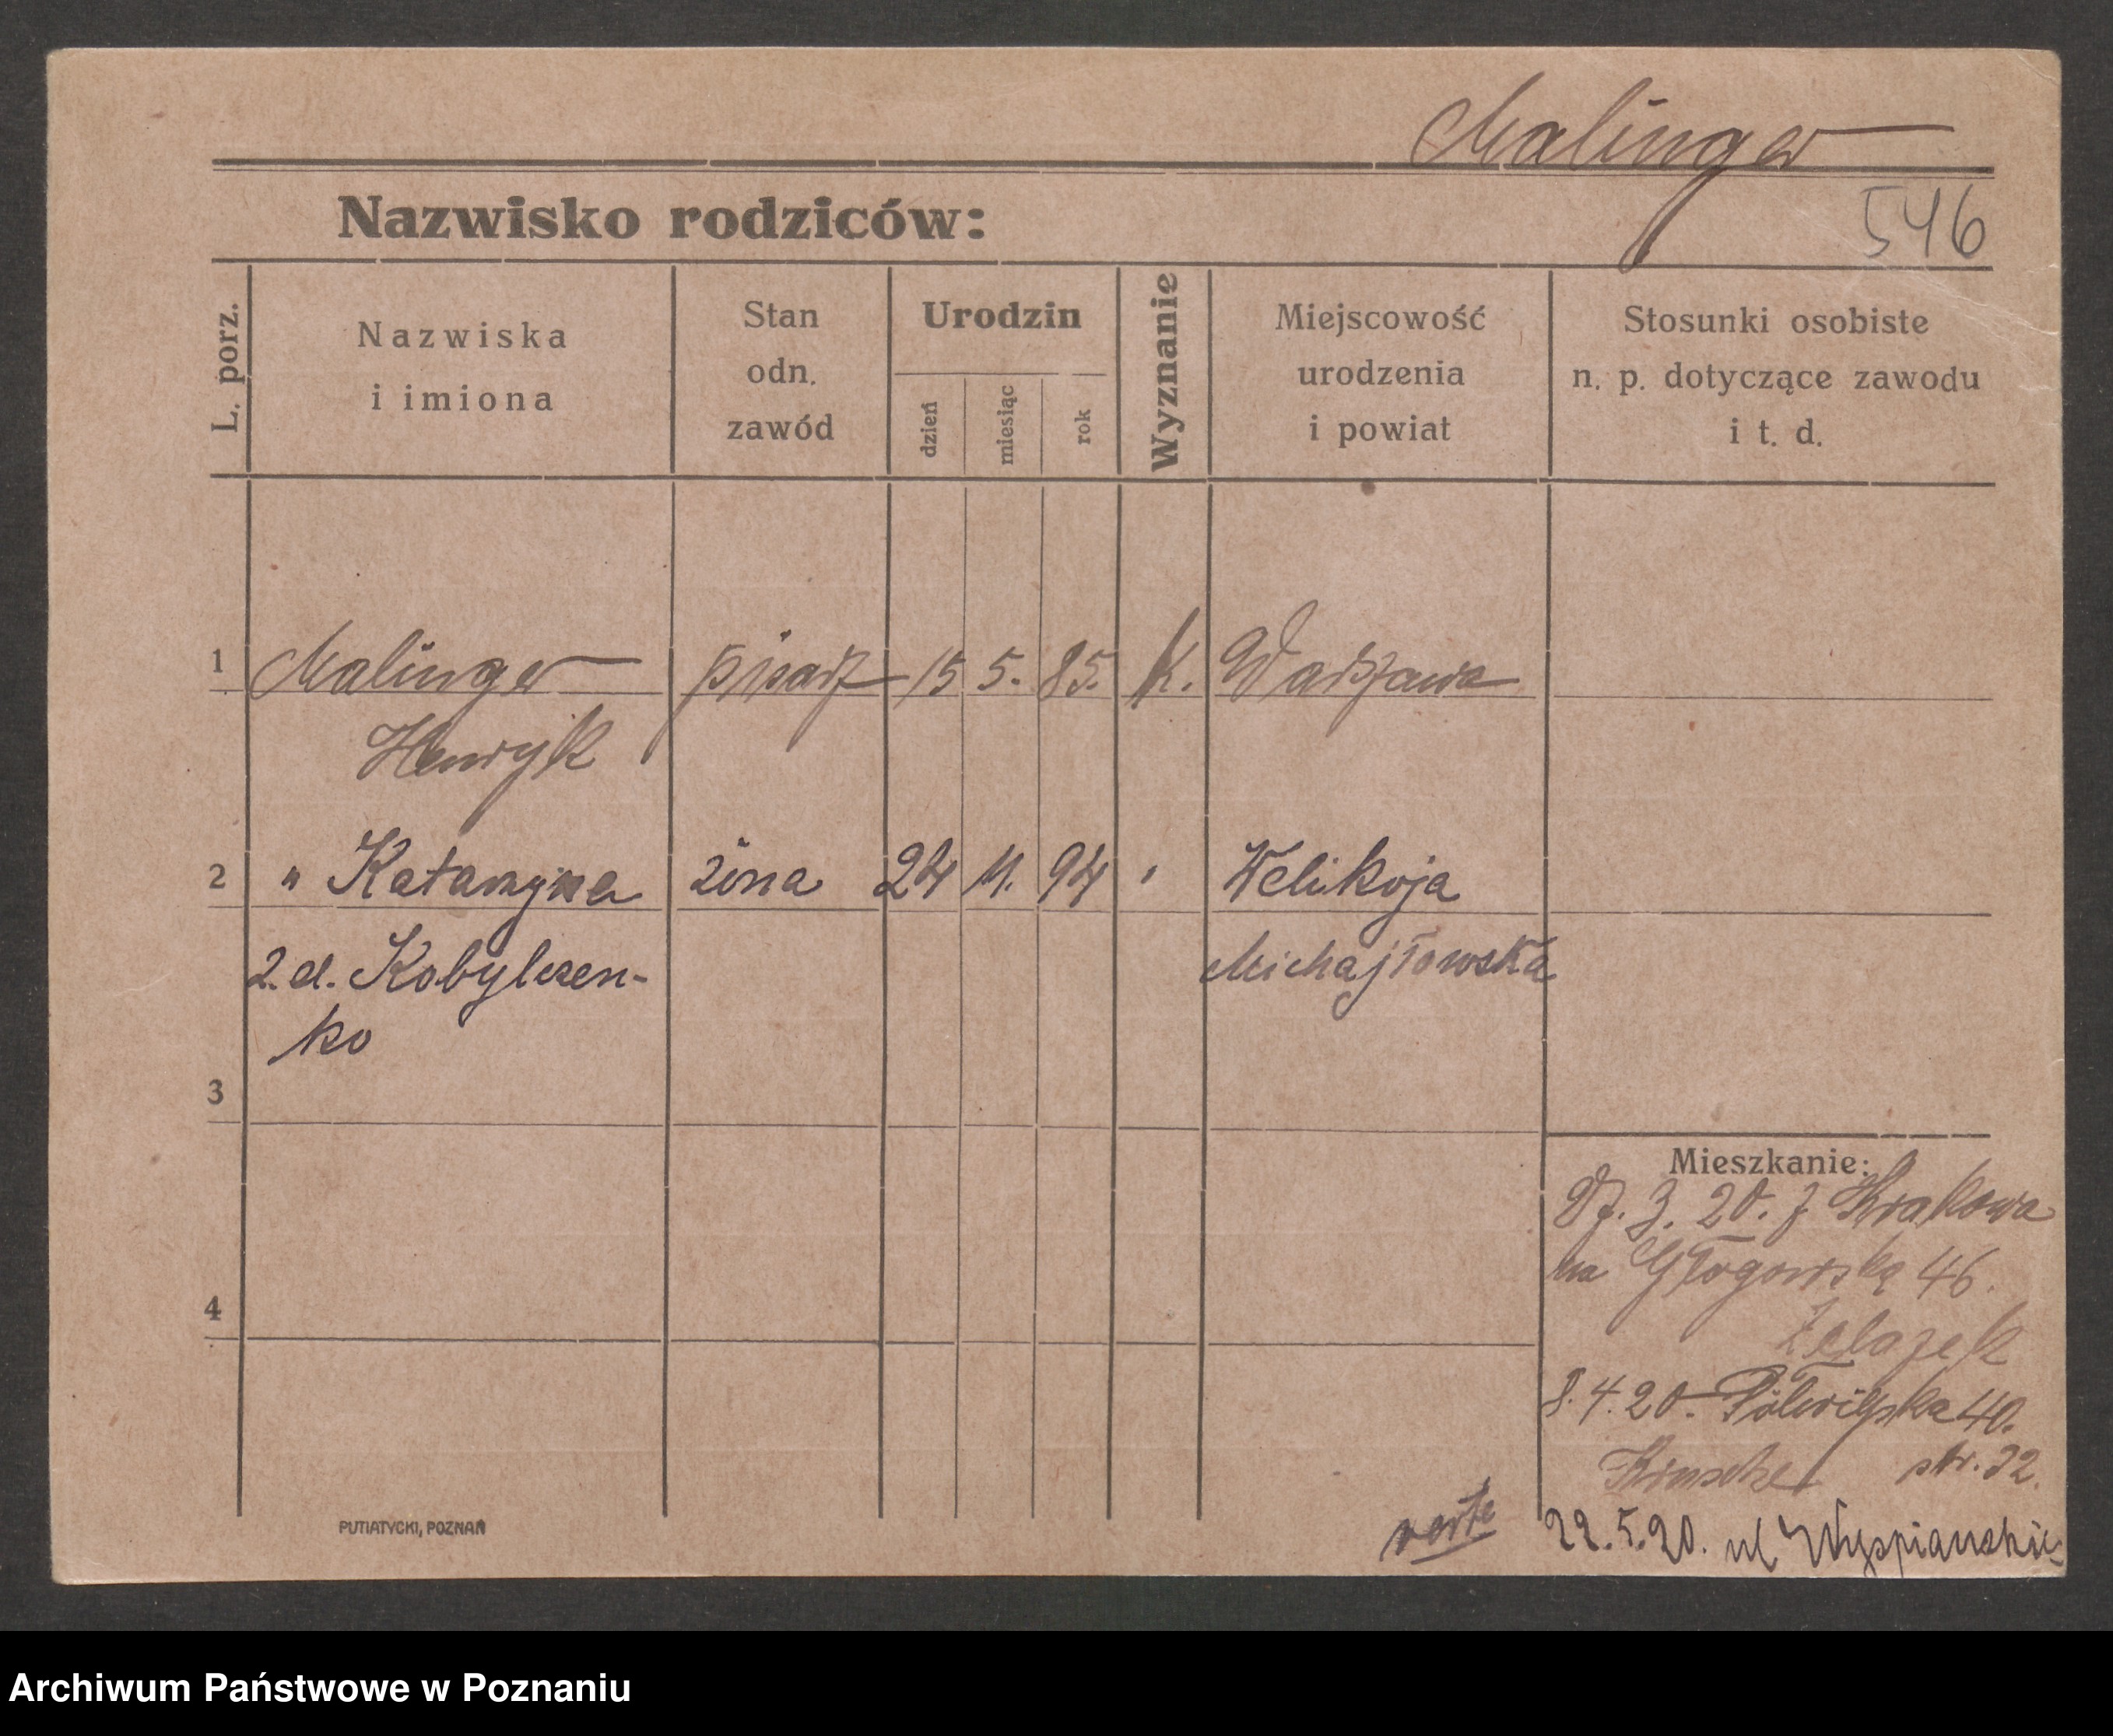 Malinger
Nazwisko rodziców:
546
L. porz.
Nazwiska
i imiona
Stan
odn.
zawód
Urodzin
dzień
miesiąc
rok
Wyznanie
Miejscowość
urodzenia
i powiat
Stosunki osobiste
n. p. dotyczące zawodu
i t. d.
1 Malinger pisarz 15 5. 85. K. Warszawa
Henryk
2 " Katarzyna żona 24 11. 94 " Welikoja
z. d. Kobylezen-
Michajłowska
ko
3
Mieszkanie:
3. 20. z Krakowa
na Głogowską 46.
4
Żelazek
8. 4. 20. Półwiejska 40.
str. 32.
verte
22. 5. 20. ul Wyspiańskie
PUTIATYCKI, POZNAŃ
Archiwum Państwowe w Poznaniu